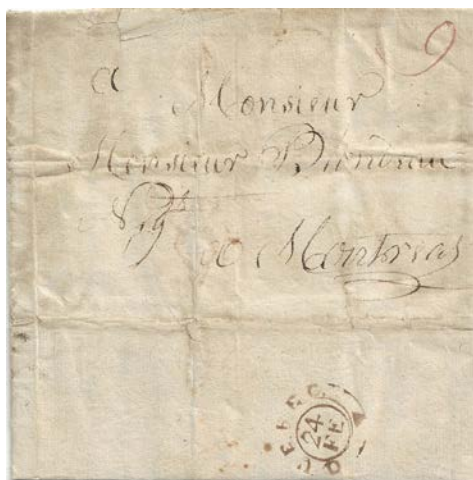 9
a Monsieur
Monsieur
a Montreal
QUEBEC
24
FE